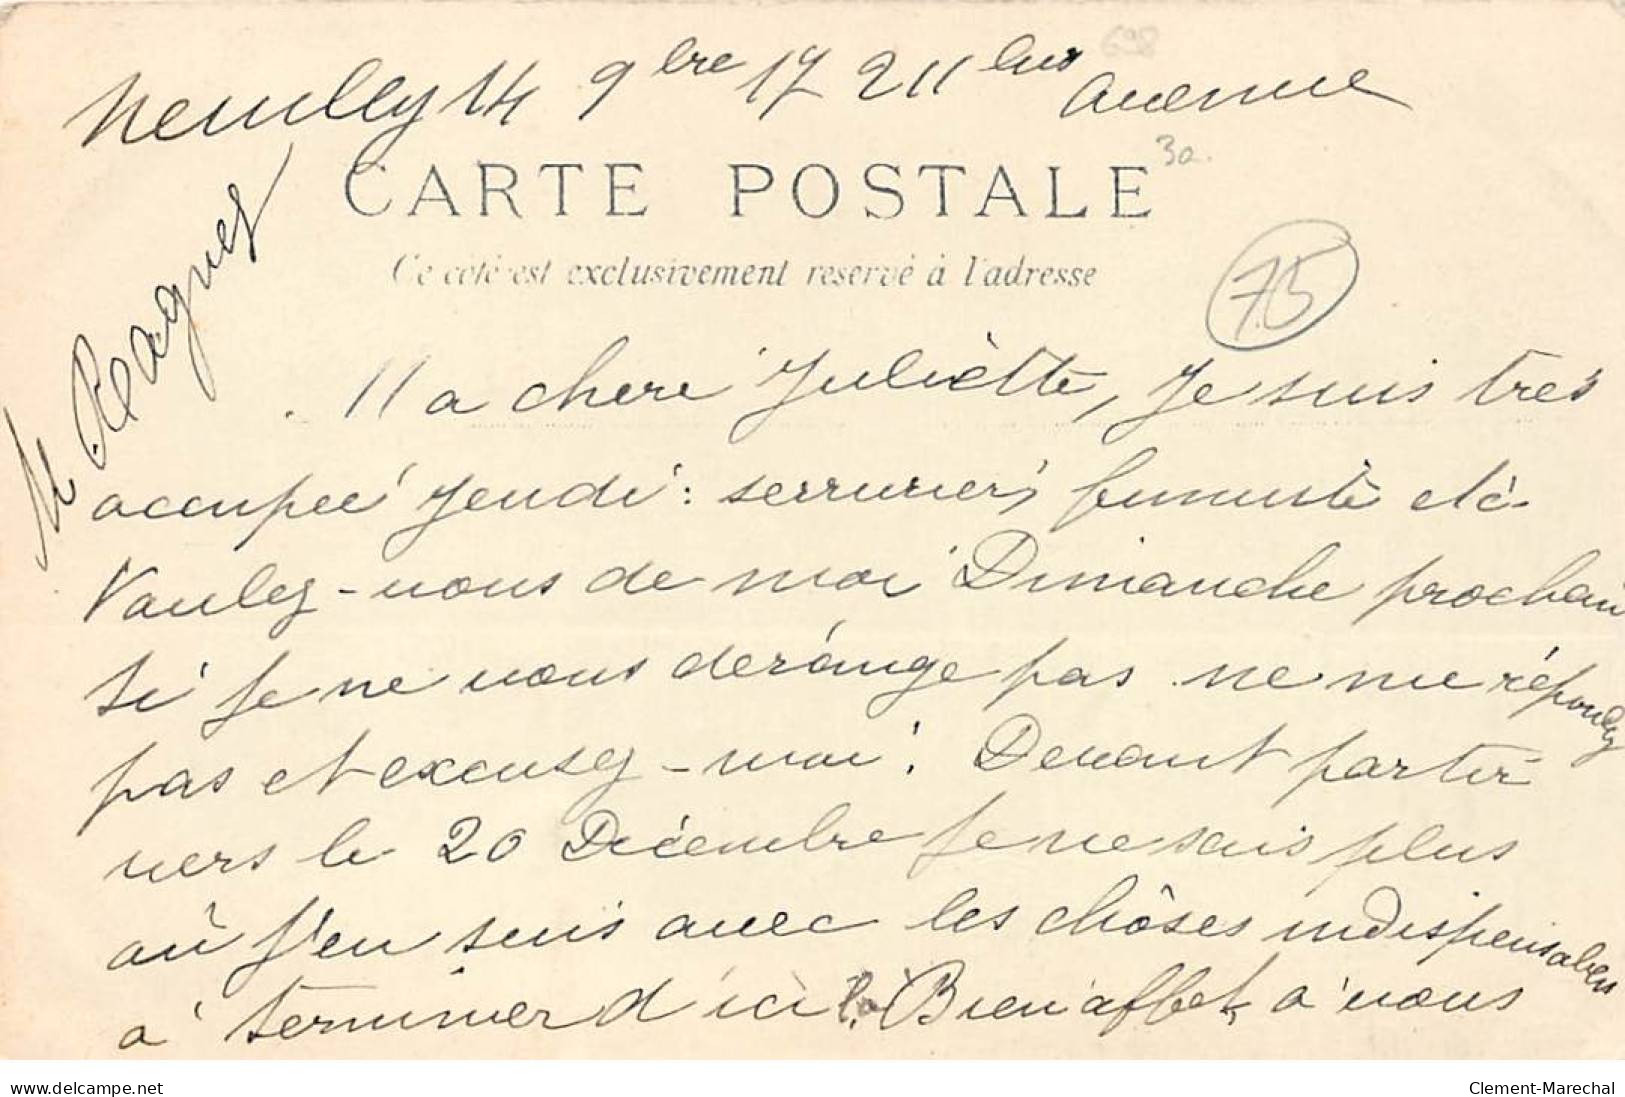 Neuilly 14 9bre 17 211 bis Avenue
698
CARTE POSTALE
30.
Ce côté est exclusivement reservé à l'adresse
75
Ma chere Juliètte, je suis tres
occupeé Jeudi : serrurier, fumiste etc.
Voulez-vous de moi Dimanche prochain
si je ne vous derange pas ne me répondez
pas et excusez-moi. Devant partir
vers le 20 Décembre je ne sais plus
où j'en suis avec les chôses indispensables
à terminer d'ici là. Bien affect. à vous
www.delcampe.net
Clement-Marechal